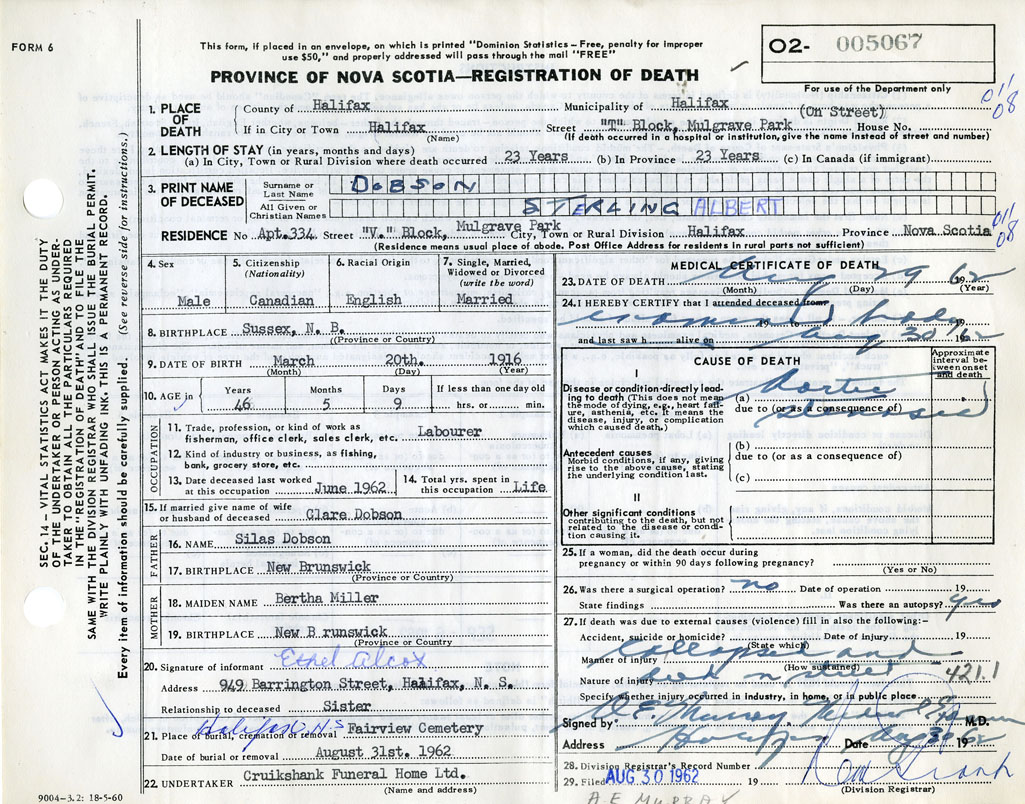 FORM 6
This form, if placed in an envelope, on which is printed "Dominion Statistics – Free, penalty for improper
use $50," and properly addressed will pass through the mail "FREE"
PROVINCE OF NOVA SCOTIA—REGISTRATION OF DEATH
O2- 005067
For use of the Department only
01
08
1. PLACE OF DEATH
County of Halifax Municipality of Halifax
(On Street)
If in City or Town Halifax Street "T" Block, Mulgrave Park House No.
(Name) (If death occurred in a hospital or institution, give the name instead of street and number)
2. LENGTH OF STAY (in years, months and days)
(a) In City, Town or Rural Division where death occurred 23 Years (b) In Province 23 Years (c) In Canada (if immigrant)
3. PRINT NAME OF DECEASED
Surname or Last Name DOBSON
All Given or Christian Names STERLING ALBERT
011
08
RESIDENCE No Apt.334 Street "V." Block, Mulgrave Park City, Town or Rural Division Halifax Province Nova Scotia
(Residence means usual place of abode. Post Office Address for residents in rural parts not sufficient)
4. Sex Male
5. Citizenship (Nationality) Canadian
6. Racial Origin English
7. Single, Married, Widowed or Divorced (write the word) Married
8. BIRTHPLACE Sussex, N. B.
(Province or Country)
9. DATE OF BIRTH March 20th. 1916
(Month) (Day) (Year)
10. AGE in Years 46 Months 5 Days 9 If less than one day old hrs. or min.
OCCUPATION
11. Trade, profession, or kind of work as
fisherman, office clerk, sales clerk, etc. Labourer
12. Kind of industry or business, as fishing,
bank, grocery store, etc.
13. Date deceased last worked at this occupation June 1962
14. Total yrs. spent in this occupation Life
15. If married give name of wife
or husband of deceased Clare Dobson
FATHER
16. NAME Silas Dobson
17. BIRTHPLACE New Brunswick
(Province or Country)
MOTHER
18. MAIDEN NAME Bertha Miller
19. BIRTHPLACE New B runswick
(Province or Country)
20. Signature of informant Ethel Alcox
Address 949 Barrington Street, Halifax, N. S.
Relationship to deceased Sister
Halifax N S
21. Place of burial, cremation or removal Fairview Cemetery
Date of burial or removal August 31st. 1962
22. UNDERTAKER Cruikshank Funeral Home Ltd.
(Name and address)
9004–3.2: 18-5-60
MEDICAL CERTIFICATE OF DEATH
23. DATE OF DEATH Aug 29 1962
(Month) (Day) (Year)
24. I HEREBY CERTIFY that I attended deceased from
examined body 19
and last saw h alive on Aug 30/62 19
CAUSE OF DEATH
Approximate interval between onset and death
I
Disease or condition directly leading to death (This does not mean the mode of dying, e.g., heart failure, asthenia, etc. It means the disease, injury, or complication which caused death.)
(a) Aortic
due to (or as a consequence of)
Stenosis
Antecedent causes
Morbid conditions, if any, giving rise to the above cause, stating the underlying condition last.
(b)
due to (or as a consequence of)
(c)
II
Other significant conditions
contributing to the death, but not related to the disease or condition causing it.
25. If a woman, did the death occur during
pregnancy or within 90 days following pregnancy?
(Yes or No)
26. Was there a surgical operation? no Date of operation 19
State findings Was there an autopsy? yes
27. If death was due to external causes (violence) fill in also the following:–
Accident, suicide or homicide? Date of injury 19
(State which)
Manner of injury Collapsed and
(How sustained)
Nature of injury died on street -421.1
Specify whether injury occurred in industry, in home, or in public place
Signed by: A.E. Murray Medical Examiner M.D.
Address Halifax Date Aug 30 1962
28. Division Registrar's Record Number
29. Filed AUG 30 1962 19
(Division Registrar)
A E MURRAY
SEC. 14 – VITAL STATISTICS ACT MAKES IT THE DUTY
OF THE UNDERTAKER OR PERSON ACTING AS UNDER-
TAKER TO OBTAIN ALL THE PARTICULARS REQUIRED
IN THE "REGISTRATION OF DEATH" AND TO FILE THE
SAME WITH THE DIVISION REGISTRAR WHO SHALL ISSUE THE BURIAL PERMIT.
WRITE PLAINLY WITH UNFADING INK. THIS IS A PERMANENT RECORD.
Every item of information should be carefully supplied. (See reverse side for instructions.)